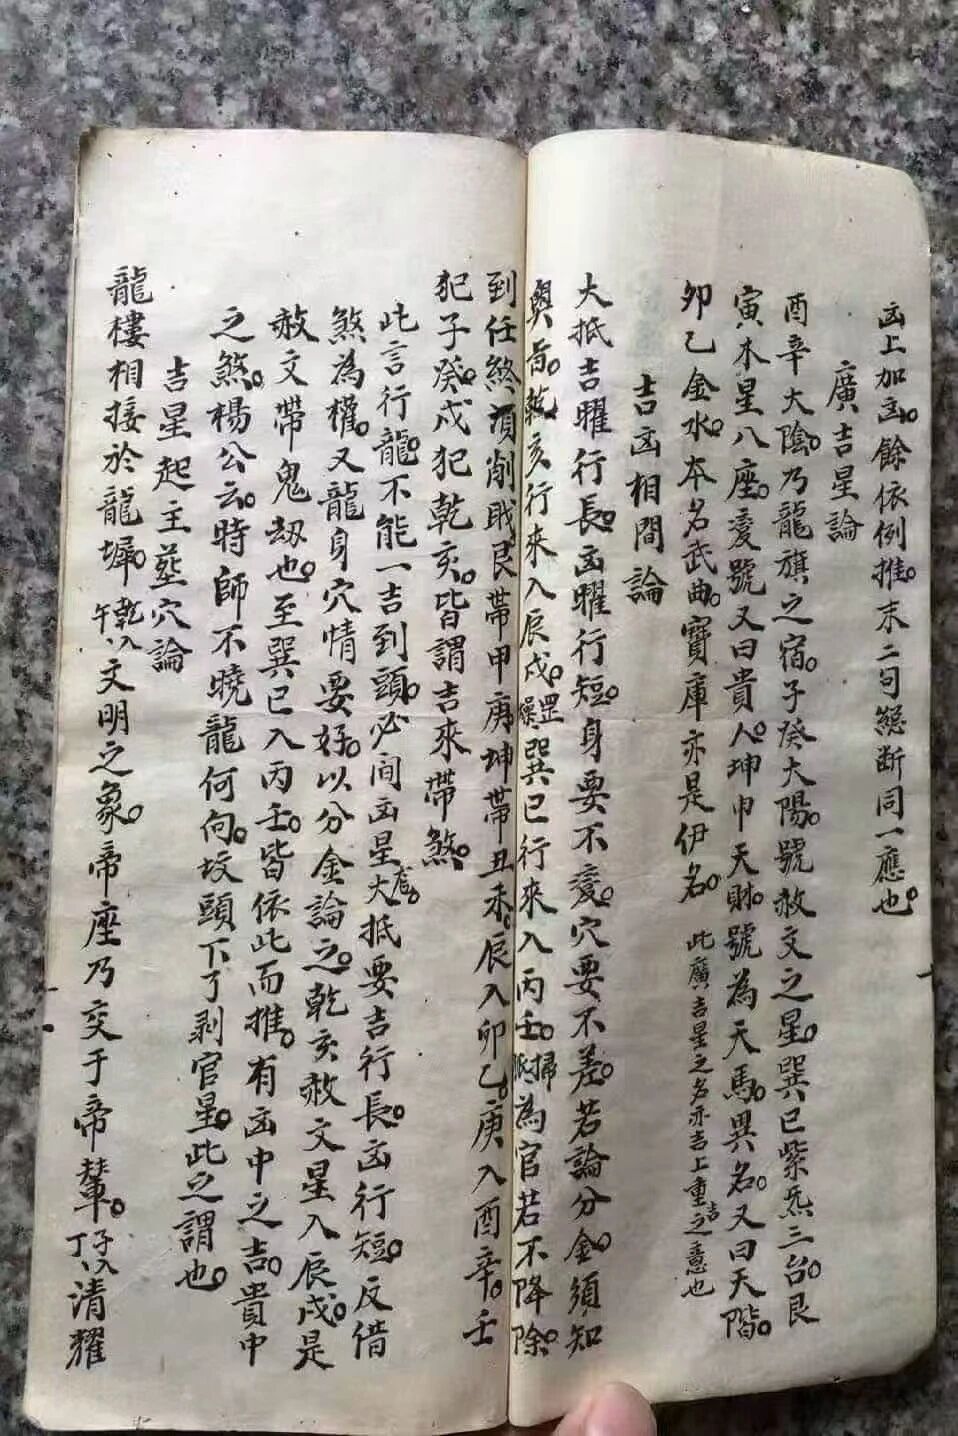 凶上加凶餘依例推末二句總斷同一應也
廣吉星論
酉辛大陰乃龍旗之宿子癸大陽號赦文之星巽巳紫炁三台艮
寅木星八座变號又曰貴人坤申天財號為天馬異名又曰天階
卯乙金水本名武曲寶庫亦是伊名 此廣吉星之名亦吉上重吉之意也
吉凶相間論
大抵吉曜行長凶曜行短身要不变穴要不差若論分金須知
奧旨乾亥行來入辰戌罡燥巽巳行來入丙壬掃為官若不降除
到任煞須削戝艮帶甲庚坤帶丑未辰入卯乙庚入酉辛壬
犯子癸戌犯乾亥皆謂吉來帶煞
此言行龍不能一吉到頭必间凶星大抵要吉行長凶行短反借
煞為權又龍身穴情要好以分金論之乾亥赦文星入辰戌是
赦文帶鬼刼也至巽巳入丙壬皆依此而推有凶中之吉貴中
之煞楊公云時師不曉龍何向坟頭下了剥官星此之謂也
吉星起主塟穴論
龍樓相接於龍墀乾入午文明之象帝座乃交于帝輦子入丁清耀